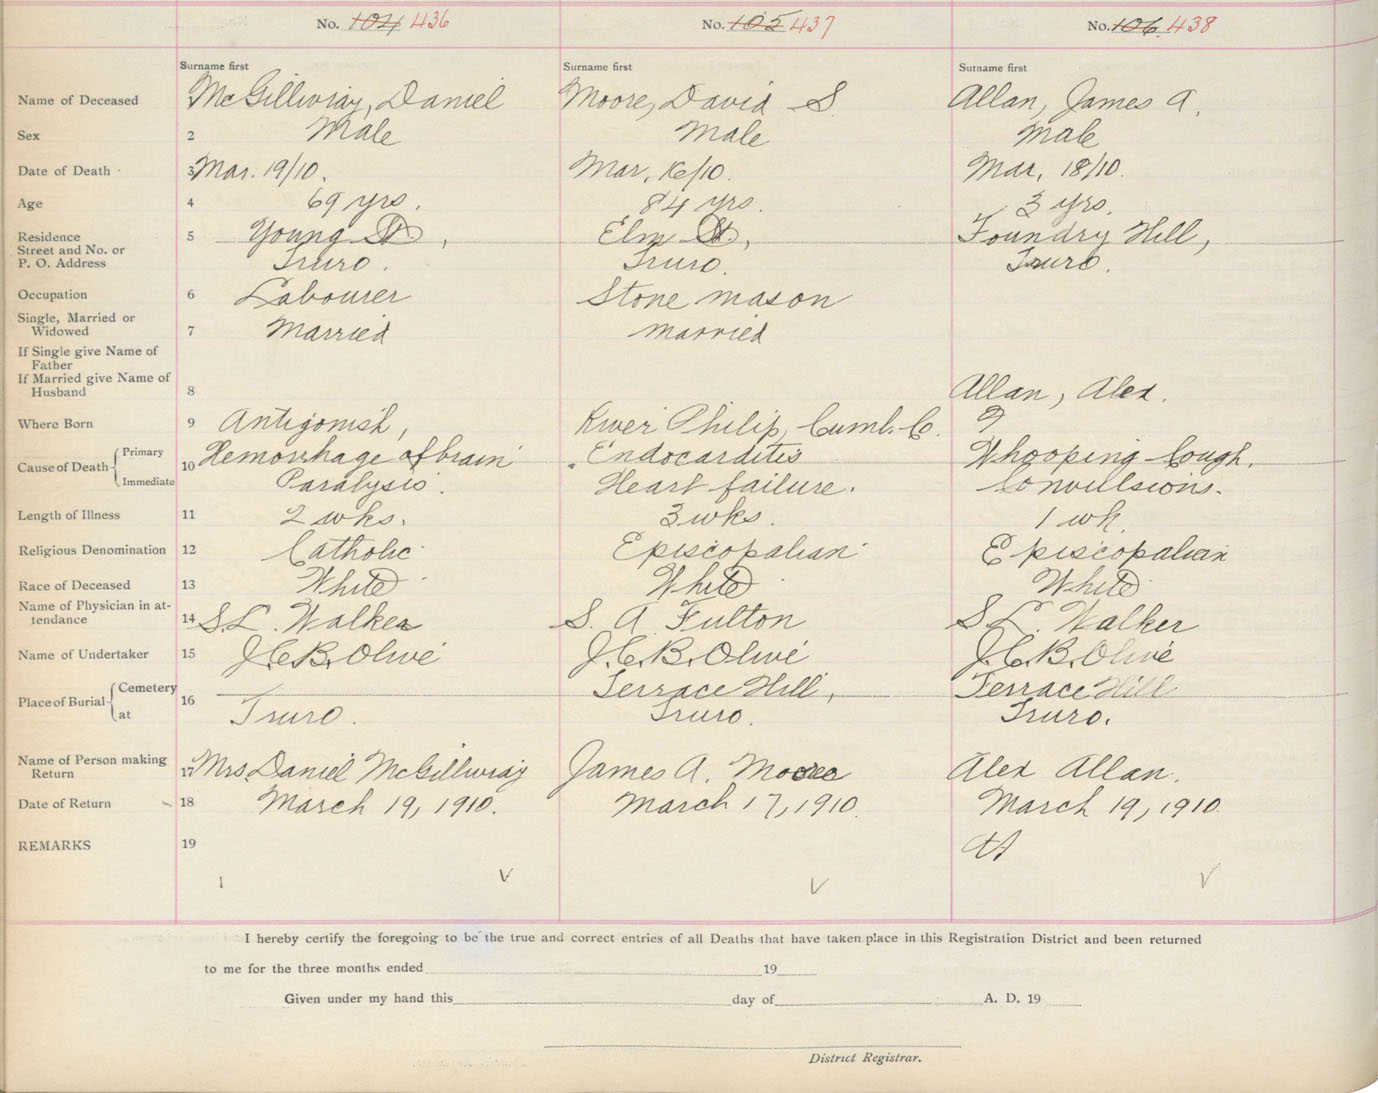 No. 104 436 No. 105 437 No. 106 438
Surname first Surname first Surname first
Name of Deceased McGillivray, Daniel Moore, David S Allan, James A.
Sex 2 Male Male Male
Date of Death 3 Mar. 19/10. Mar. 16/10. Mar. 18/10.
Age 4 69 yrs. 84 yrs. 3 yrs.
Residence 5 Young St, Elm St, Foundry Hill,
Street and No. or
P. O. Address Truro. Truro. Truro.
Occupation 6 Labourer Stone mason
Single, Married or
Widowed 7 Married married
If Single give Name of
Father
If Married give Name of
Husband 8 Allan, Alex.
Where Born 9 Antigonish, River Philip, Cumb. C. ?
Cause of Death Primary 10 Hemorrhage of brain Endocarditis Whooping Cough.
Immediate Paralysis. Heart failure. Convulsions.
Length of Illness 11 2 wks. 3 wks. 1 wk.
Religious Denomination 12 Catholic Episcopalian Episcopalian
Race of Deceased 13 White White White
Name of Physician in at-
tendance 14 S.L. Walker S. A Fulton S.L. Walker
Name of Undertaker 15 J.C.B. Olive J.C.B. Olive J.C.B. Olive
Place of Burial Cemetery 16 Terrace Hill, Terrace Hill
at Truro. Truro. Truro.
Name of Person making
Return 17 Mrs. Daniel McGillivray James A. Moore Alex Allan.
Date of Return 18 March 19, 1910. March 17, 1910. March 19, 1910
REMARKS 19
I hereby certify the foregoing to be the true and correct entries of all Deaths that have taken place in this Registration District and been returned
to me for the three months ended 19
Given under my hand this day of A. D. 19
District Registrar.